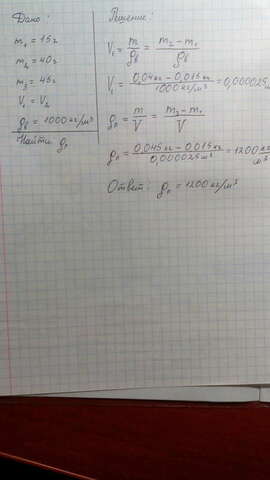 Дано:
m₁ = 15г
m₂ = 40г
m₃ = 45г
V₁ = V₂
ρв = 1000 кг/м³
Найти: ρ₀
Решение:
V₁ = m/ρв = (m₂ - m₁)/ρв
V₁ = (0,04кг - 0,015кг)/(1000 кг/м³) = 0,000025м
ρ₀ = m/V = (m₃ - m₁)/V
ρ₀ = (0,045кг - 0,015кг)/(0,000025м³) = 1200 кг/м³
Ответ: ρ₀ = 1200 кг/м³